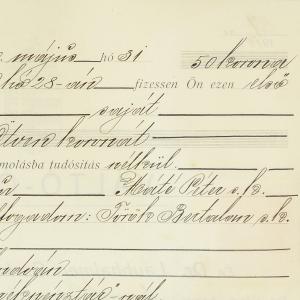 május hó 31 50 korona
hó 28-án fizessen Ön ezen első
saját
Ötven koronát
molásba tudósítás nélkül.
Máté Péter s. k.
lfogadom: Török Bertalan s. k.